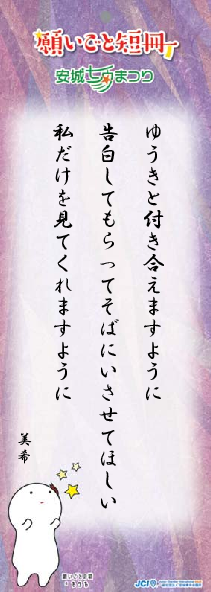 願いごと短冊
安城七夕まつり
ゆうきと付き合えますように
告白してもらってそばにいさせてほしい
私だけを見てくれますように
美希
JCI